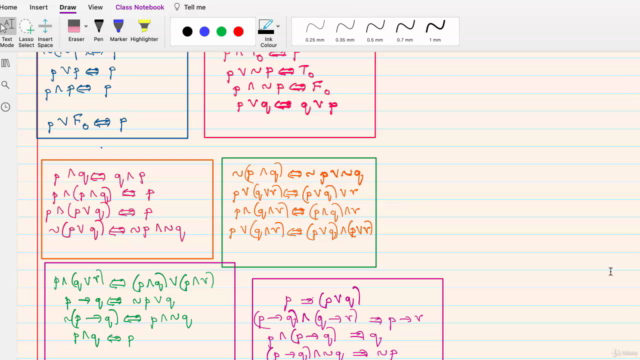 Home Insert Draw View Class Notebook Tell me
Text Mode
Lasso Select
Insert Space
Eraser
Pen
Marker
Highlighter
Ink Colour
0.25 mm
0.35 mm
0.5 mm
0.7 mm
1 mm
p∨p ⇔ p
p∧p ⇔ p
p∨F₀ ⇔ p
p∨T₀ ⇔ T₀
p∨~p ⇔ T₀
p∧~p ⇔ F₀
p∨q ⇔ q∨p
p∧q ⇔ q∧p
p∧(p∧q) ⇔ p
p∧(p∨q) ⇔ p
~(p∨q) ⇔ ~p∧~q
~(p∧q) ⇔ ~p∨~q
p∨(q∨r) ⇔ (p∨q)∨r
p∧(q∧r) ⇔ (p∧q)∧r
p∨(q∧r) ⇔ (p∨q)∧(p∨r)
p∧(q∨r) ⇔ (p∧q)∨(p∧r)
p→q ⇔ ~p∨q
~(p→q) ⇔ p∧~q
p∧q ⇔ p
p ⇒ (p∨q)
(p→q)∧(q→r) ⇒ p→r
p∧(p→q) ⇒ q
(p→q)∧~q ⇒ ~p